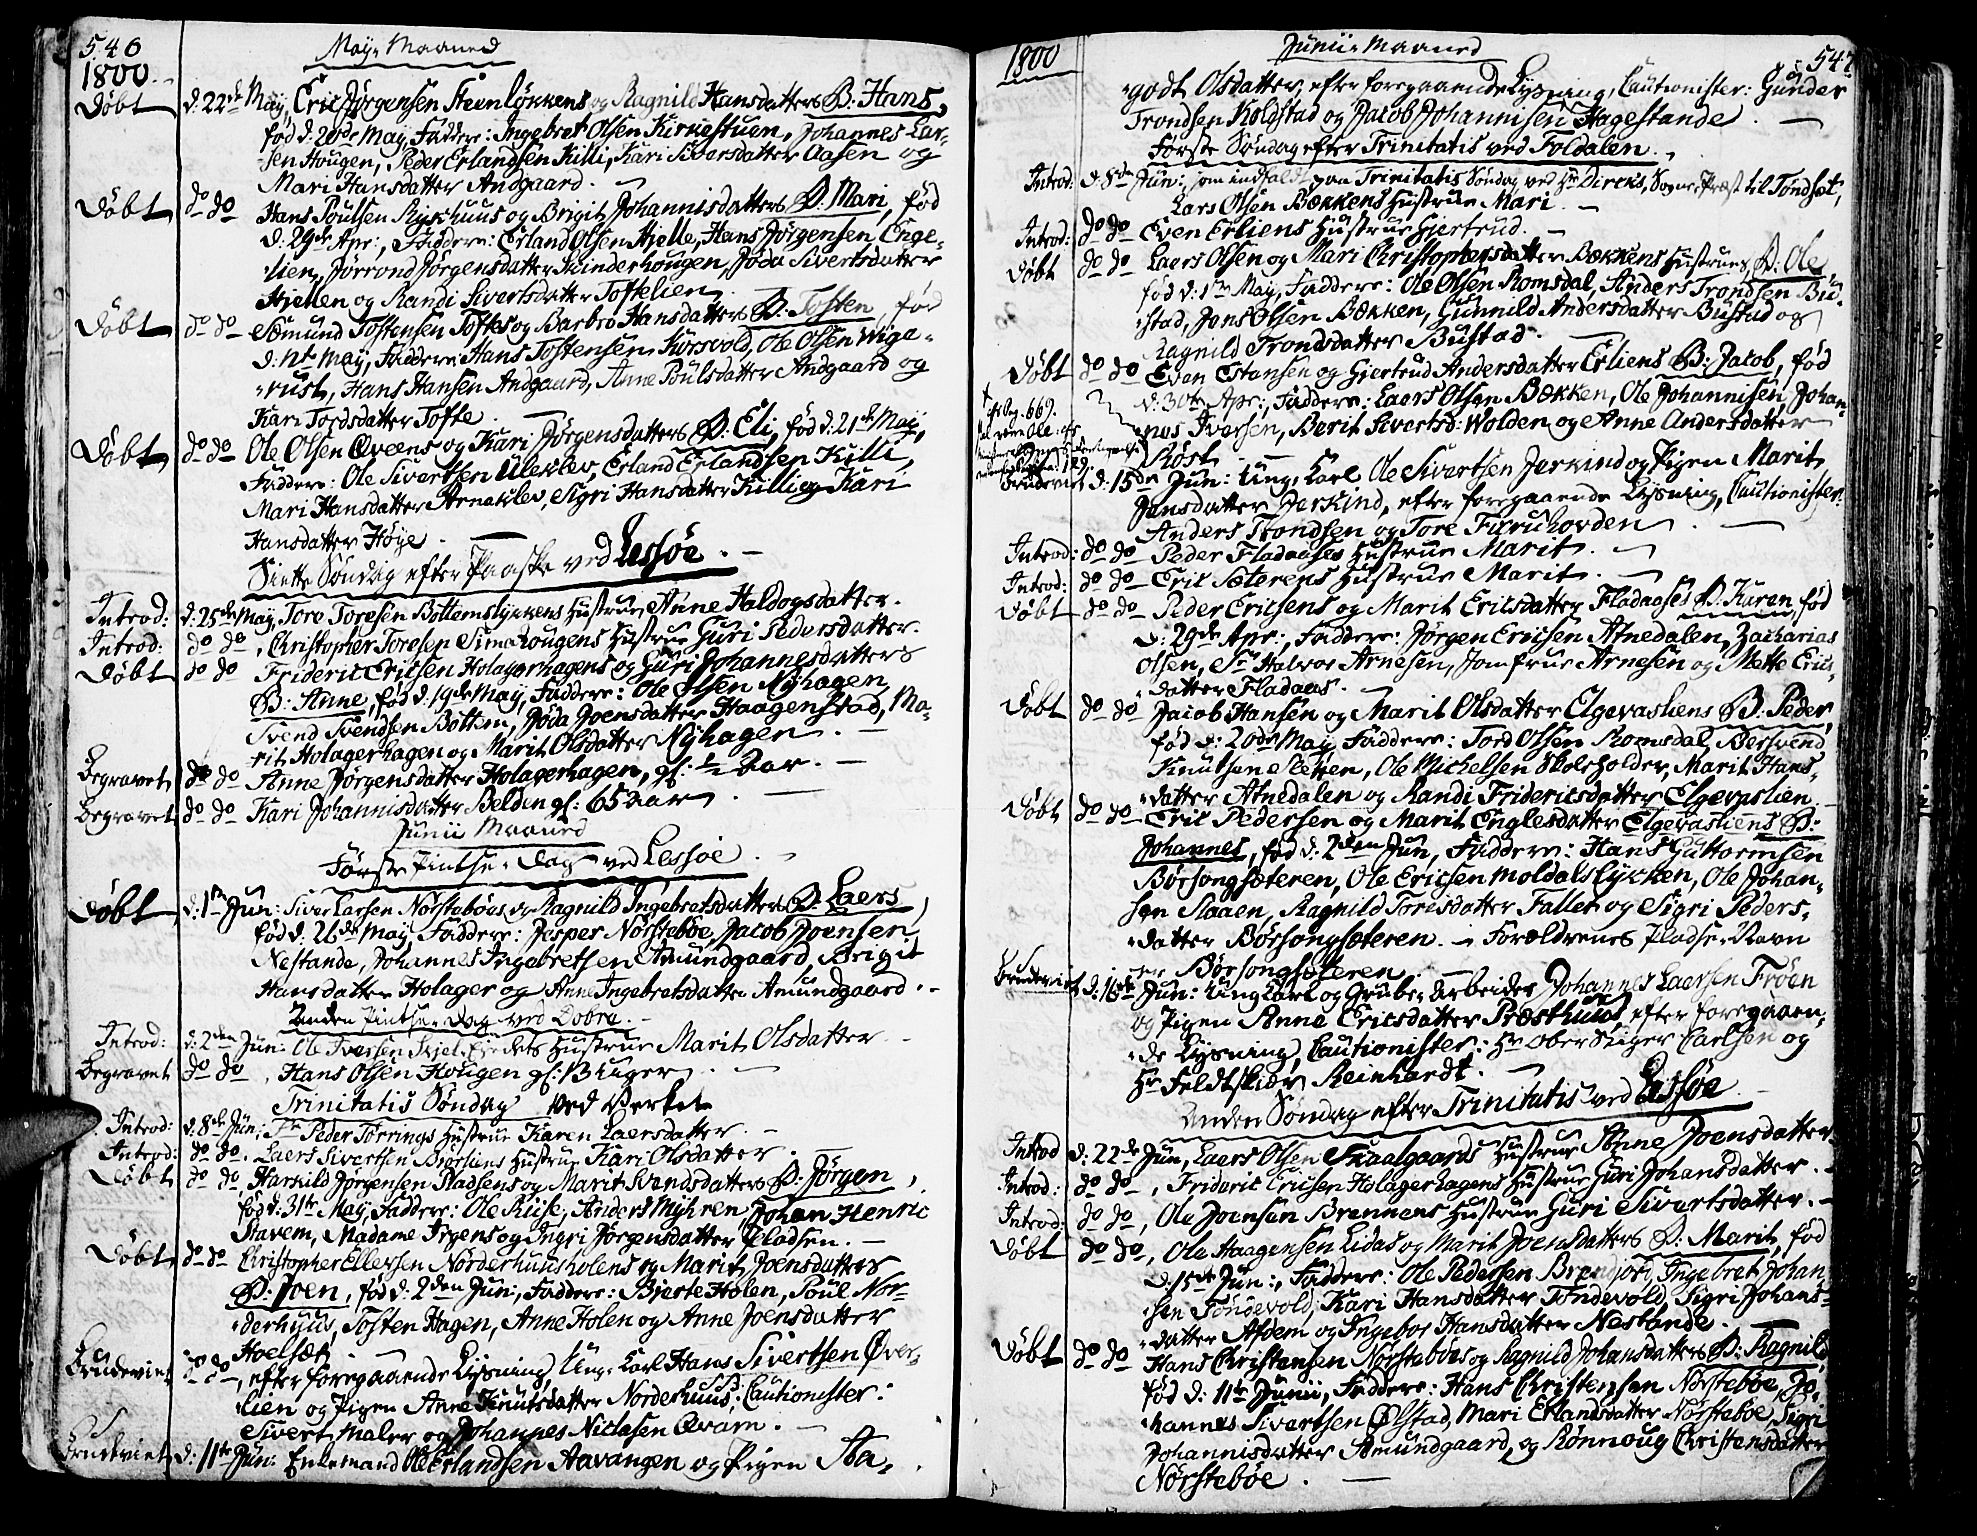 546
1800.
May Maaned
Döbt d: 22de May, Eric Jørgensen Steenløkkens og Ragnild Hansdatters B: Hans,
fød d: 20de May, Faddere: Ingebret Olsen Kirkestuen, Johannes Lar-
sen Hougen, Peder Erlandsen Killi, Kari Siversdatter Aasen og
Mari Hansdatter Andgaard.
Döbt do do Hans Poulsen Ryshuus og Brigit Johannisdatters B: Mari, fød
d: 29de Apr:, Faddere: Erland Olsen Hjelle, Hans Jørgensen Enge-
lien, Jørrond Jørgensdatter Skinderhougen, Jøda Sivertsdatter
Hjellen og Randi Sivertsdatter Toftelien
Döbt do do Semund Tostensen Toftes og Barbro Hansdatters B: Tosten, fød
d: May, Faddere: Hans Tostensen Korsvold, Ole Olsen Wige-
rust, Hans Hansen Andgaard, Anne Poulsdatter Andgaard og
Kari Tordsdatter Tofte.
Döbt do do Ole Olsen Qveens og Kari Jørgensdatters B: Eli, fød d: 21de May,
Faddere: Ole Sivertsen Uleklev, Erland Erlandsen Killi,
Mari Hansdatter Arneklev, Sigri Hansdatter Killi og Kari
Hansdatter Høye.
Siette Søndag efter Paaske ved Lessøe.
Introd: d: 25de May, Tore Toresen Bottemslykkens Hustrue Anne Haldogsdatter.
Introd: do do, Christopher Toresen Hougens Hustrue Guri Pedersdatter.
Döbt do do Frideric Ericsen Holagerhagens og Guri Johannesdatters
B: Anne, fød d: 19de May, Faddere: Ole Olsen Nyhagen,
Svend Svendsen Bottem, Jøda Joensdatter Haagenstad, Ma-
rit Holagerhagen og Marit Olsdatter Nyhagen.
Begravet do do Anne Jørgensdatter Holagerhagen, gl: 1/2 Aar.
Begravet do do Kari Johannisdatter Belden gl: 65 Aar
Junii Maaned
Første Pintse-Dag ved Lessøe.
Döbt d: 1ste Jun: Siver Larsen Norstebøes og Ragnild Ingebretsdatters B: Laers
fød d: 26de May, Faddere: Jesper Nørstebøe, Jacob Joensen
Nestande, Johannes Ingebretsen Amundgaard, Brigit
Hansdatter Holager og Anne Ingebretsdatter Amundgaard.
Anden Pintse-Dag ved Dobra.
Introd: d: 2den Jun: Ole Iversen Hustrue Marit Olsdatter
Begravet do do, Hans Olsen Hougen gl: 3 Uger.
Trinitatis Søndag ved Verket
Introd: d: 8de Jun: Peder Tørrings Hustrue Karen Laersdatter.
Introd: do do. Laers Sivertsen Hustrue Kari Olsdatter.
Döbt do do Harkild Jørgensen Pladsens og Marit Svendsdatters B: Jørgen,
fød d: 31te May, Faddere: Ole Riise, Anders Myhren, Johan Henric
Stavem, Madame Irgens og Ingri Jørgensdatter Pladsen.
Döbt do do Christopher Ellevsen Norderhuusholens og Marit Joensdatters
B: Joen, fød d: 2den Jun:, Faddere: Bjerte Holen, Poul Nor-
derhuus, Tosten Hagen, Anne Holen og Anne Joensdatter
Hoelsæt
Brudeviet do do, efter foregaaende Lysning, Ung-Karl Hans Sivertsen Øver-
lien og Pigen Anne Knutsdatter Norderhuus; Cautionister:
Sivert Maler og Johannes Niclasen Qvam.
Brudeviet d: 11te Jun: Enkemand Ole Erlandsen Aavangen og Pigen Aa-
1800
Junii Maaned
547
godt Olsdatter, efter foregaaende Lysning, Cautionister: Gunder
Trondsen Koldstad og Jacob Johannisen Hagestande.
Første Søndag efter Trinitatis ved Foldalen.
Introd: d: 8de Jun:, som indfaldt paa Trinitatis Søndag ved Hr Dircks, Sogne-Præst til Tøndset,
Lars Olsen Bækkens Hustrue Mari.
Introd: do do Even Erliens Hustrue Gjertrud.
Döbt do do Laers Olsen og Mari Christophersdatter Bækkens Hustrues B: Ole,
fød d: 1ste May, Faddere: Ole Olsen Romsdal, Anders Trondsen Bu-
stad, Jens Olsen Bækken, Gunnild Andersdatter Bustad og
Ragnild Trondsdatter Bustad.
Döbt do do Even Estensen og Gjertrud Andersdatter Erliens B: Jacob, fød
d: 30te Apr:, Faddere: Laers Olsen Bækken, Ole Johannisen, Johan-
nes Iversen, Berit Sivertsd: Wolden og Anne Andersdatter
Röst.
pag. 669.
Brudeviet d: 15de Jun: Ung-Karl Ole Sivertsen Jerkind og Pigen Marit
Jensdatter Jerkind, efter foregaaende Lysning, Cautionister:
Anders Trondsen og Tore Furuhovden.
Introd: do do Peder Fladaases Hustrue Marit.
Introd: do do Eric Sæterens Hustrue Marit.
Döbt do do Peder Ericsens og Marit Ericsdatter Fladaases B: Karen fød
d: 29de Apr:, Faddere: Jørgen Ericsen Atnedalen, Zacharias
Olsen, Sr Halvor Arnesen, Jomfrue Arnesen og Mette Erics-
datter Fladaas.
Döbt do do Jacob Hansen og Marit Olsdatter Elgevasliens B: Peder,
fød d: 20de May, Faddere: Tord Olsen Romsdal, Bersvend
Knutsen Sletten, Ole Mickelsen Skoleholder, Marit Hans-
datter Atnedalen og Randi Fridericsdatter Elgevaslien.
Döbt do do Eric Pedersen og Marit Englesdatter Elgevasliens B:
Johannes, fød d: 2den Jun, Faddere: Hans Guttormsen
Børsongsæteren, Ole Ericsen Moldalslykken, Ole Johan-
sen Slaaen, Ragnild Torisdatter Faller og Sigri Peders-
datter Børsongsæteren. Forældrenes Pladse-Navn
er Børsongsæteren.
Brudeviet d: 16de Jun: Ung Karl og Grube-Arbeider Johannes Laersen Frøen
og Pigen Anne Ericsdatter Præsthuus efter foregaaen-
de Lysning, Cautionister: Hr OberStiger Carlsen og
Hr Feldtskiær Reinhardt.
Anden Søndag efter Trinitatis ved Lessøe
Introd d: 22de Jun, Laers Olsen Skaalgaards Hustrue Anne Joensdatter.
Introd: do do, Frideric Ericsen Holagerhagens Hustrue Guri Johansdatter.
Introd: do do, Ole Joensen Brennens Hustrue Guri Sivertsdatter.
Döbt do do, Ole Haagensen Lidas og Marit Joensdatters B: Marit, fød
d: 15de Jun:, Faddere: Ole Pedersen Brenjord, Ingebret Johan-
sen Tøndevold, Kari Hansdatter Tøndevold, Sigri Johans-
datter Asoem og Ingebor Hansdatter Nestande.
Döbt do do Hans Christensen Nørstebøes og Ragnild Johansdatters B: Ragnild,
fød d: 11te Junii, Faddere: Hans Christensen Nørstebøe, Jo-
hannes Sivertsen Ølstad, Mari Erlandsdatter Nørstebøe, Sigri
Johannisdatter Amundgaard, og Rønnoug Christensdatter
Nørstebøe.